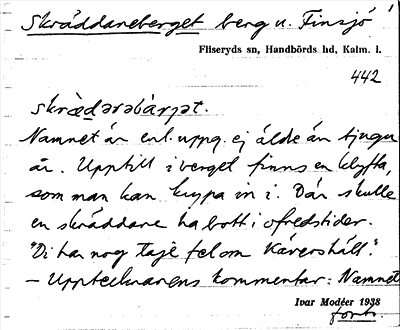 Skräddareberget berg u. Finsjö
1
Fliseryds sn, Handbörds hd, Kalm. l.
442
skræ̀dərəbárjət.
Namnet är enl. uppg. ej äldre än tjugu
år. Upptill i berget finns en klyfta,
som man kan krypa in i. Där skulle
en skräddare ha bott i ofredstider.
"Di har nog tajé fel om Kávershäll."
– Upptecknarens kommentar: Namnet
Ivar Modéer 1938
forts.